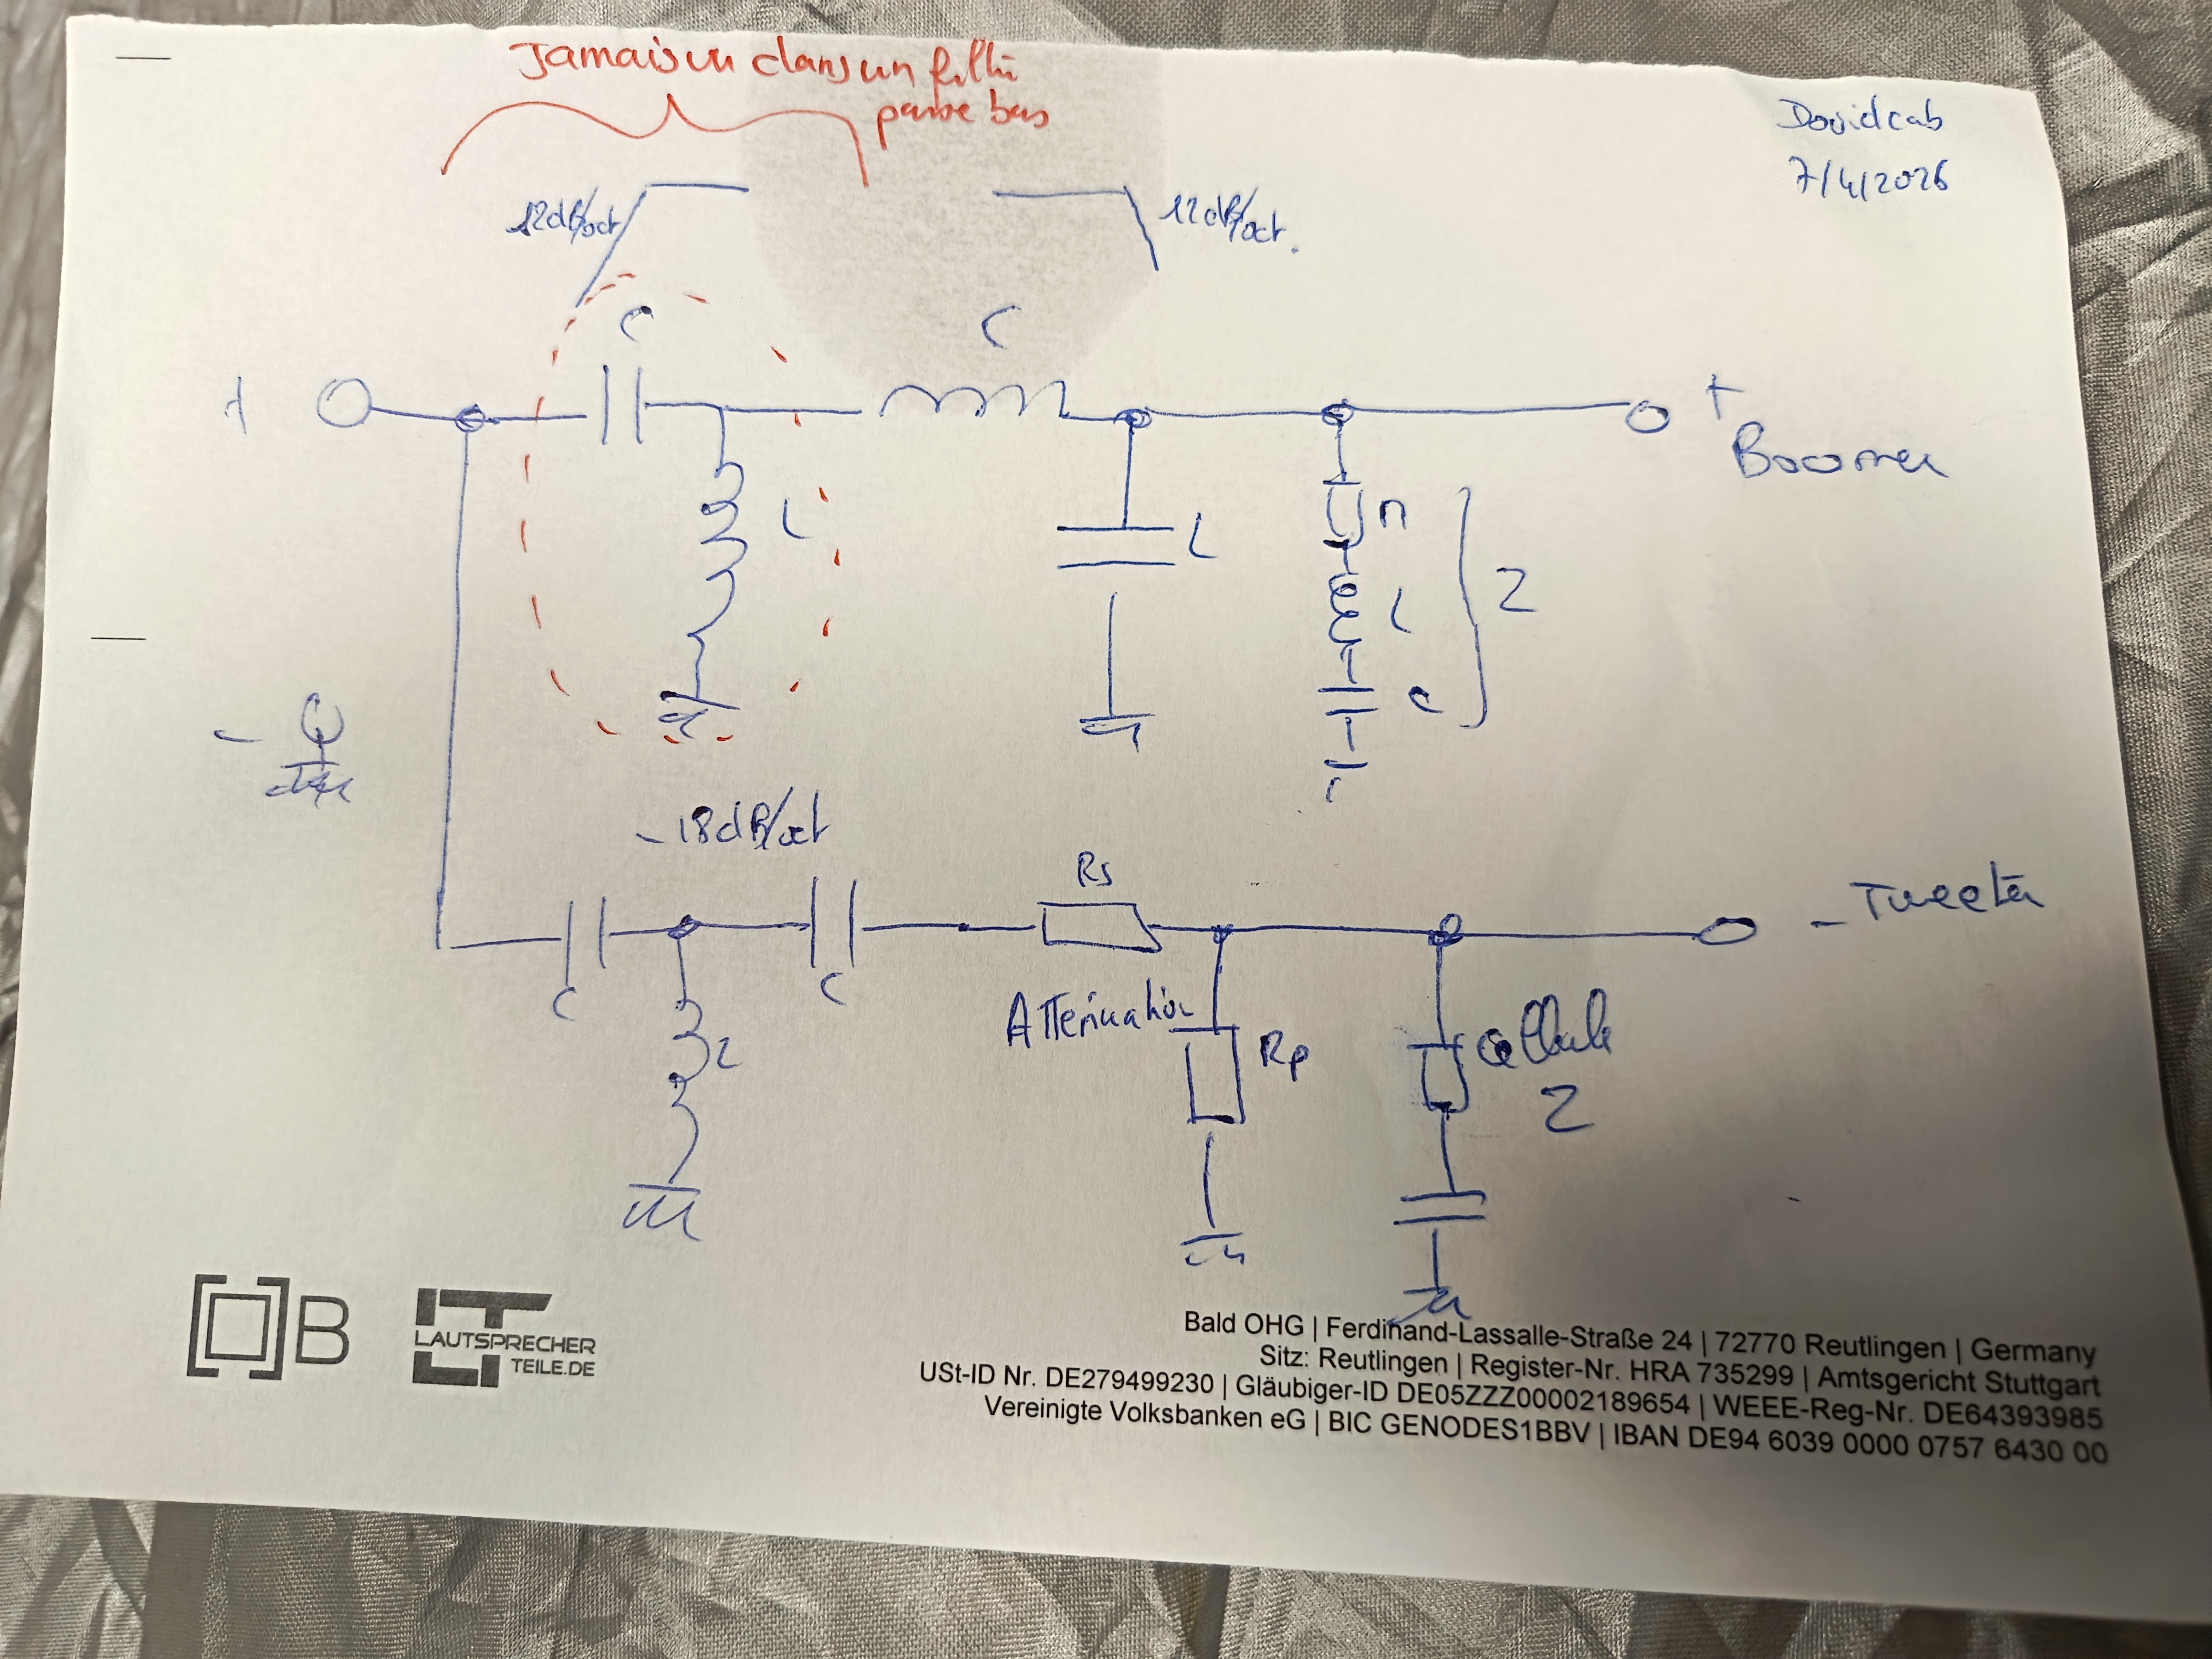 Jamais vu dans un filtre
passe bas
Davidcab
7/4/2026
12dB/oct
12dB/oct.
C
L
+
+
Boomer
L
L
R
L
C
Z
-
-18dB/oct
Rs
- Tweeter
C
C
L
Attenuation
Rp
Cellule
Z
B
LT
LAUTSPRECHER
TEILE.DE
Bald OHG | Ferdinand-Lassalle-Straße 24 | 72770 Reutlingen | Germany
Sitz: Reutlingen | Register-Nr. HRA 735299 | Amtsgericht Stuttgart
USt-ID Nr. DE279499230 | Gläubiger-ID DE05ZZZ00002189654 | WEEE-Reg-Nr. DE64393985
Vereinigte Volksbanken eG | BIC GENODES1BBV | IBAN DE94 6039 0000 0757 6430 00